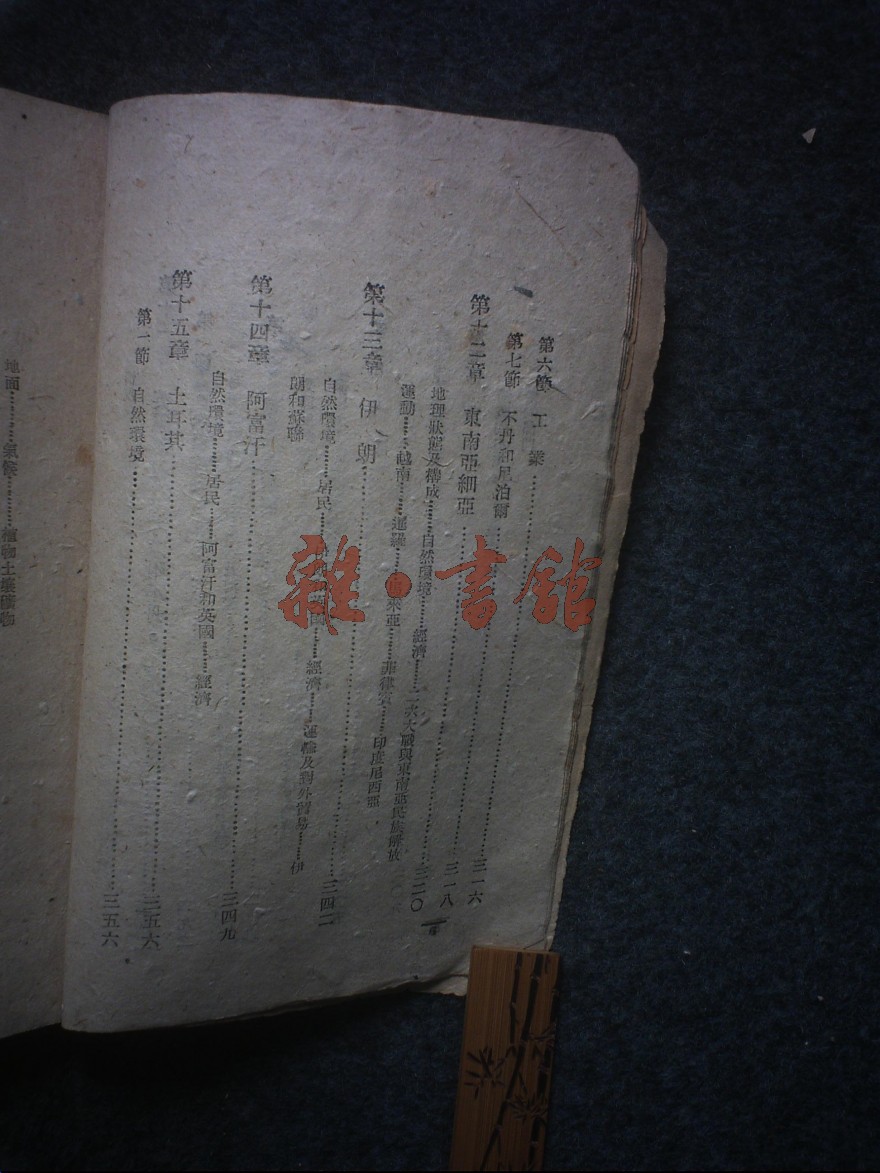 第六節 工業……三一六
第七節 不丹和尼泊爾……三一八
第十二章 東南亞細亞……三二〇
地理狀態及構成……自然環境……經濟……二次大戰與東南亞民族解放
運動……越南……暹羅……來亞……菲律賓……印度尼西亞
第十三章 伊朗……三四二
自然環境……居民……國……經濟……運輸及對外貿易……伊
朗和蘇聯
第十四章 阿富汗……三四九
自然環境……居民……阿富汗和英國……經濟
第十五章 土耳其……三五六
第一節 自然環境……三五六
地面……氣候……植物土壤礦物
雜·書館